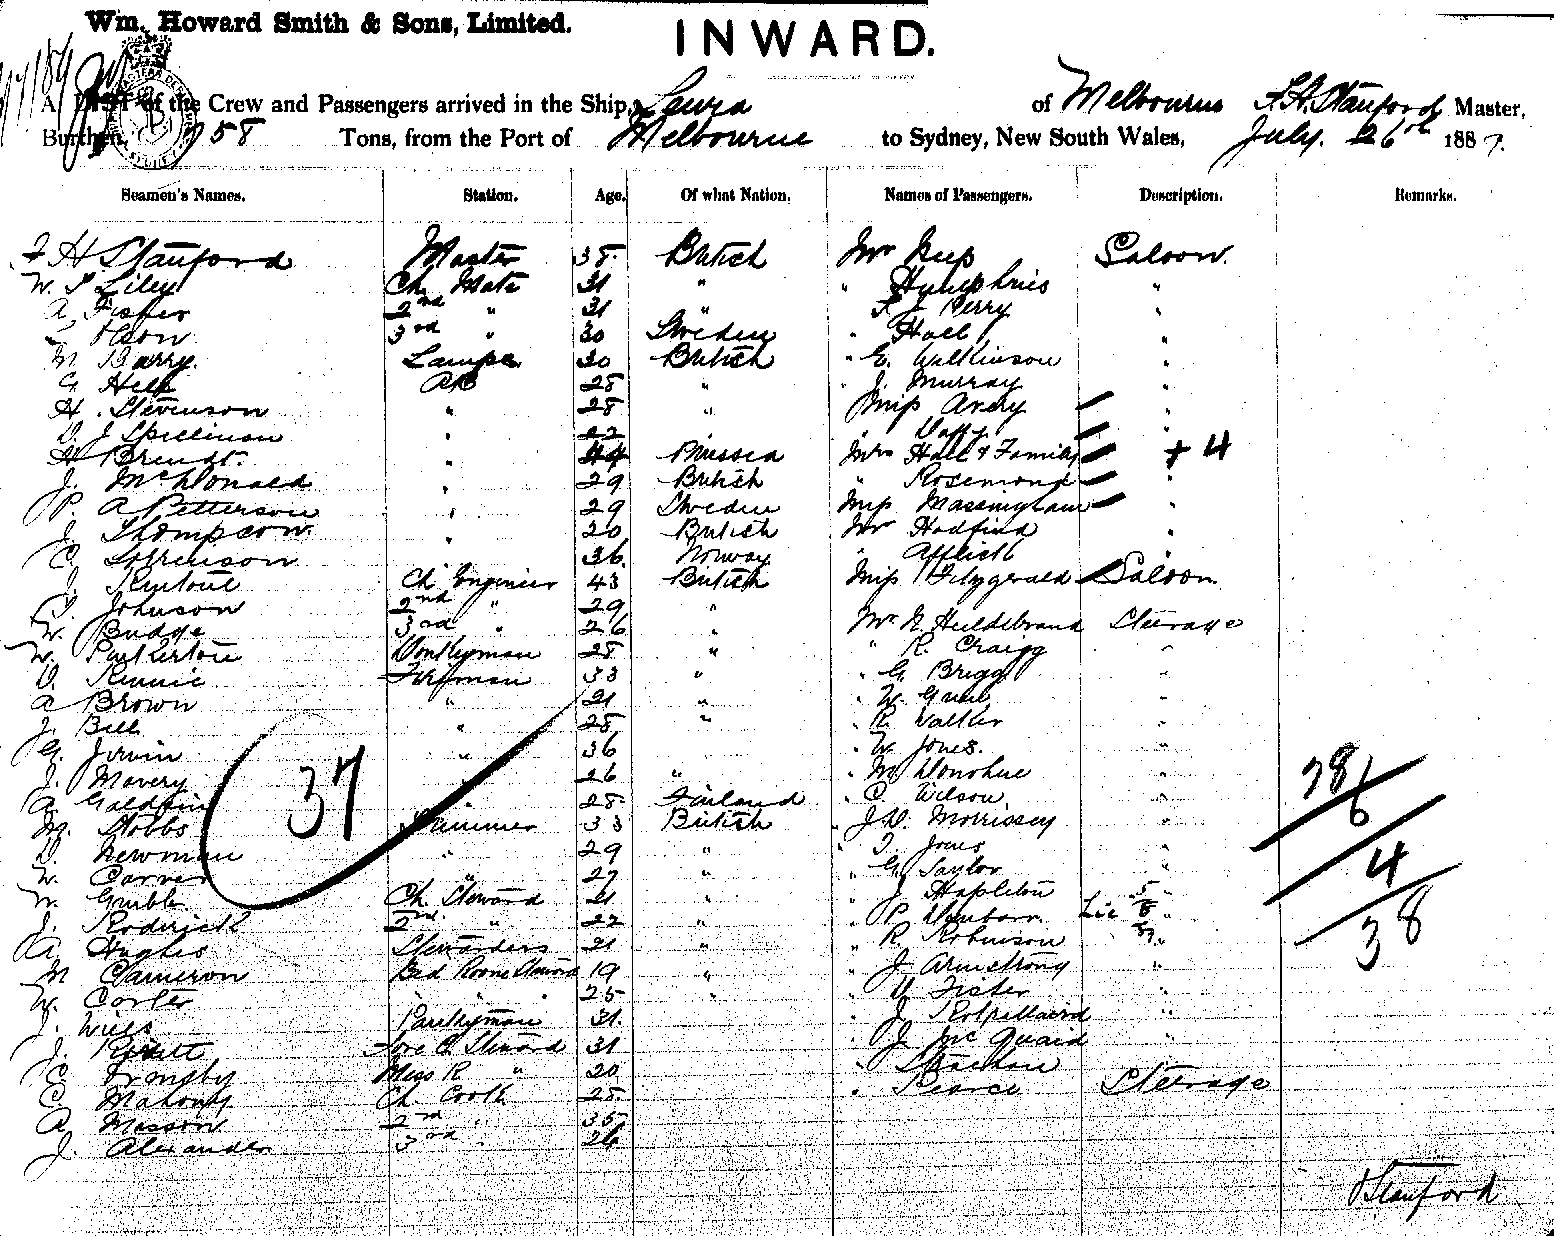 Wm. Howard Smith & Sons, Limited.
INWARD.
A LIST of the Crew and Passengers arrived in the Ship, of Melbourne F. H. Stanford Master,
Burthen 758 Tons, from the Port of Melbourne to Sydney, New South Wales, July. 26th 1887.
Seamen's Names. Station. Age. Of what Nation. Names of Passengers. Description. Remarks.
F H Stanford Master 38 British Mr Saloon
Ch Mate 31 " " Humphries "
A. Fisher 2nd " 31 " F J Perry "
Olson 3rd " 30 Sweden " Hall "
Barry Lamps 30 British " E. Wilkinson "
G. AB 28 " " J. Murray "
H. Stevenson " 28 " Miss Avery "
D. J Spillman " 22 " Duffy "
H Brendt " 44 Mrs Hall & Family + 4
J. McDonald " 29 British " Rosemond "
P. A Petterson " 29 Sweden Miss Massingham "
J. Thompson " 20 British Mr Hadfield "
C. Sorrenson " 36 Norway " "
J. Ch Engineer 43 British Miss Fitzgerald Saloon
Johnson 2nd " 29 "
W. Budge 3rd " 26 " Mr Hildebrand Steerage
W. Pinkerton Donkeyman 28 " " R. Craigg "
D. Rennie Fireman 33 " " G Brigg "
A Brown " 21 " " W. "
J. Bell " 28 " " R. Walker "
G. Irwin " 36 " W. Jones. "
J. Mavery " 26 " " M Donohue "
A. " 28 Finland " C Wilson. "
M. Stobbs Trimmer 33 British " J. D. Morrissey "
D. Newman " 29 " " Jones "
W. Carver " 27 " " G. Taylor "
W. Gribble Ch Steward 21 " " J Stapleton "
J. Roderick 2nd " 22 " " P
A. Hughes Stewardess 21 " " R Robinson "
M Cameron Bed Room Steward 19 " " J Armstrong "
W. Carter " " " 25 " " Fisher "
J. Wills Pantryman 31 " J "
J. Fore C. Steward 31 " J McQuaid "
Ormsby Mess R " 20 " Strachan "
C. Mahony Ch Cook 28 " Pearce Steerage
A. Masson 2nd " 35
J. Alexander 3rd " 26
37
28
6
4
38
Stanford